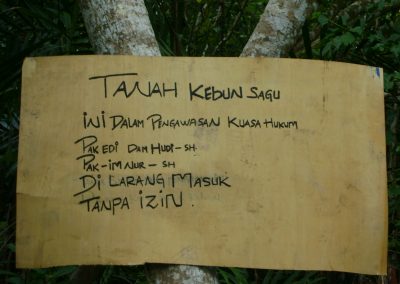 TANAH KEBUN SAGU
iNi DALAM PENGAWASAN KUASA HUKUM
PAK EDI DAN HUDI-SH.
PAK-IM NUR-SH
Di LARANG MASUK
TANPA iZIN.